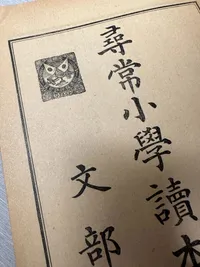 尋常小學讀本
文部